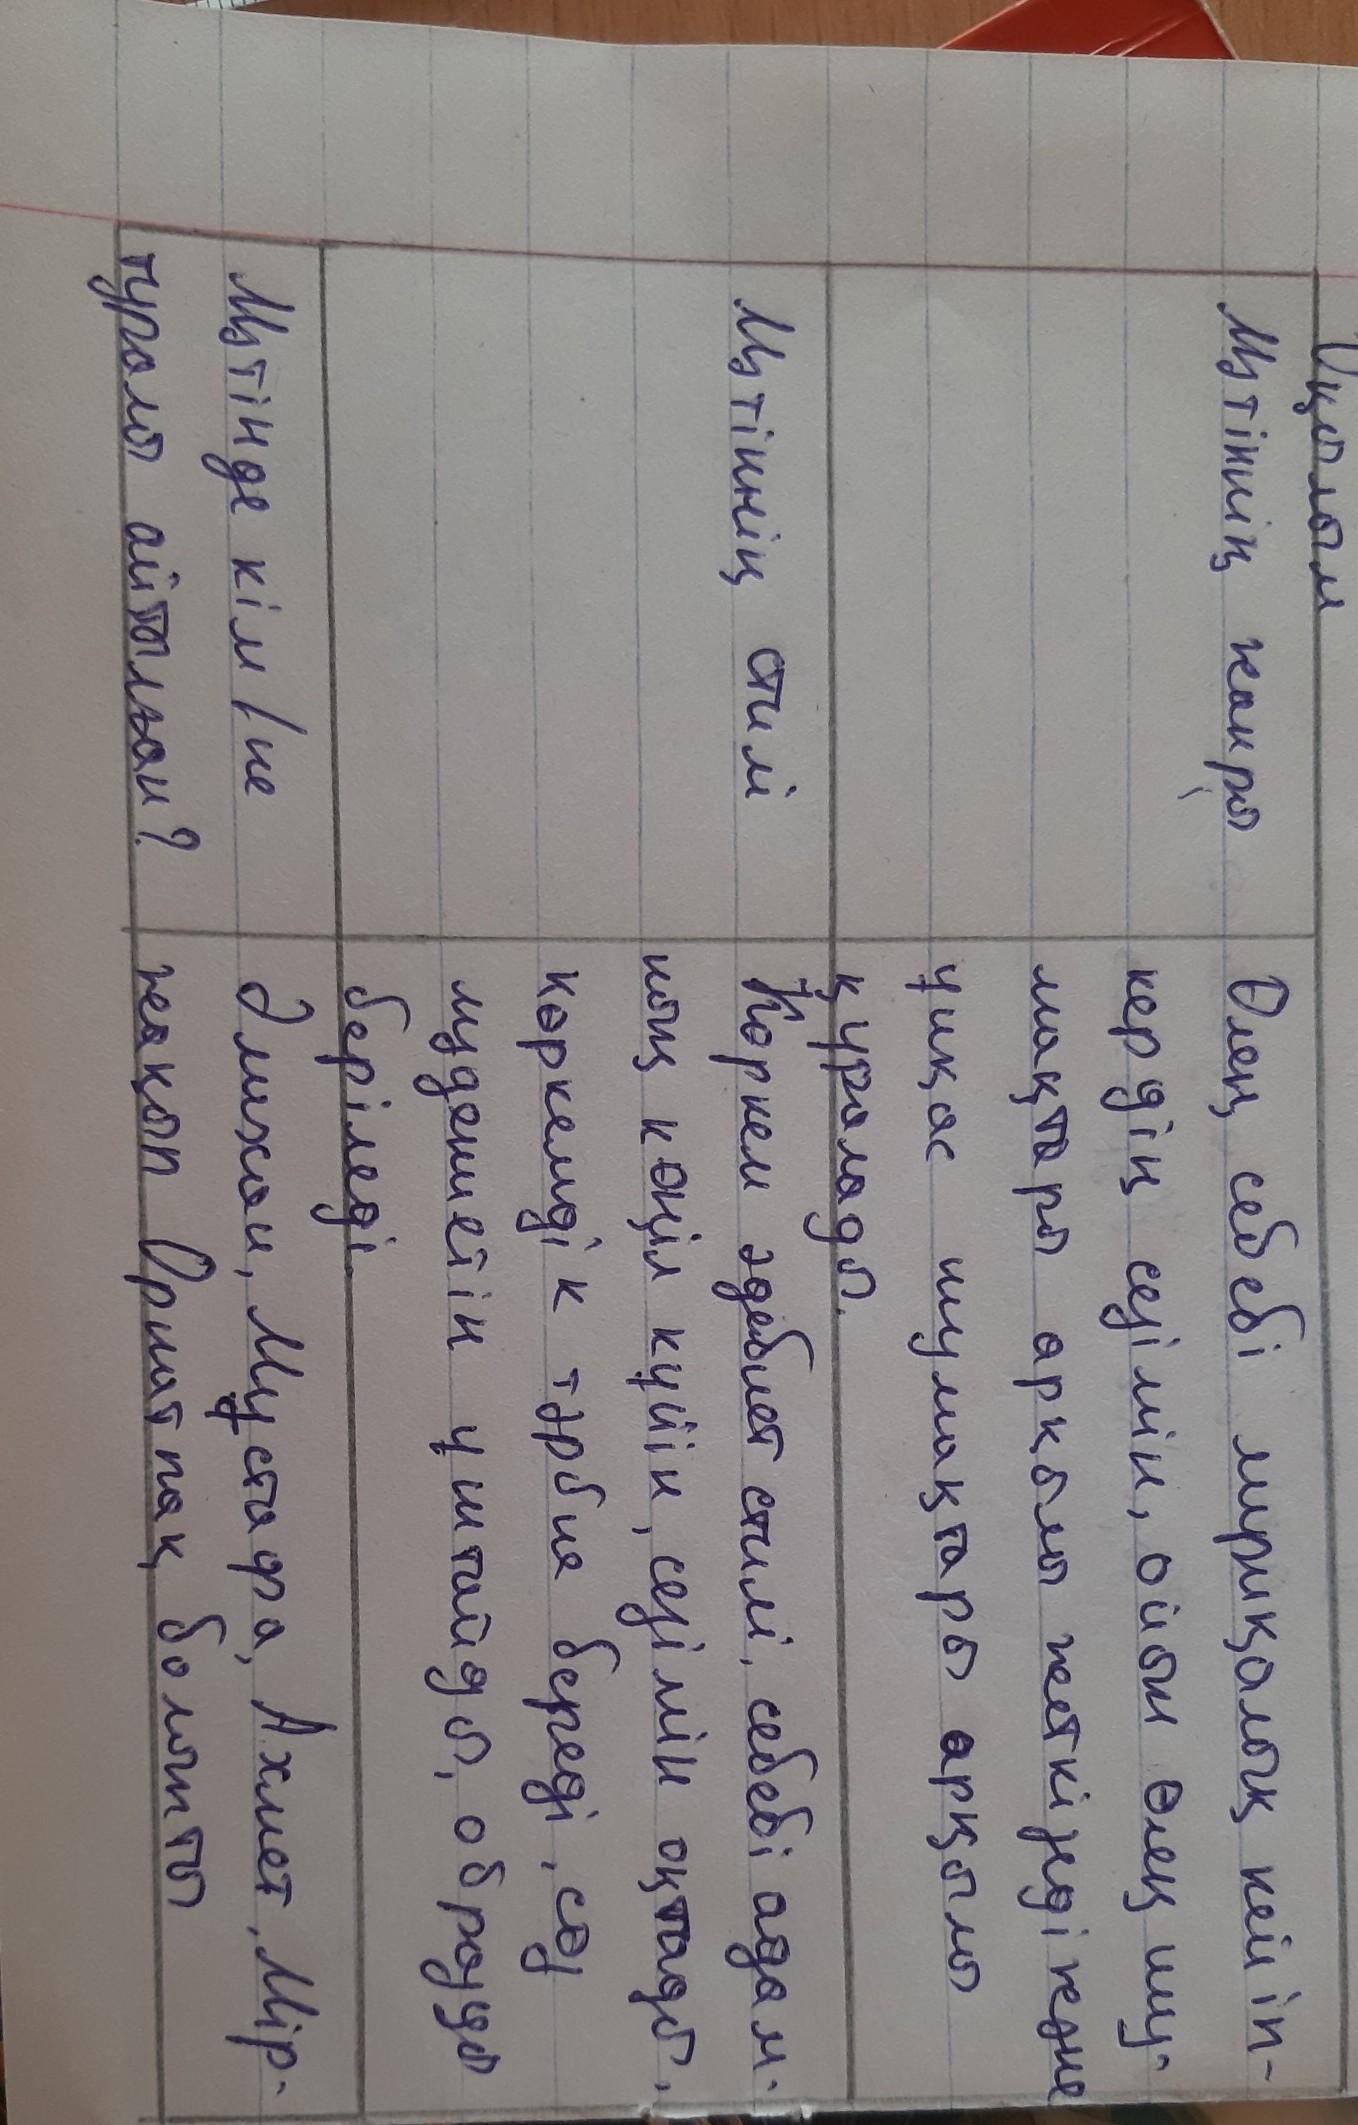 Оқылым
Мәтіннің жанры
Өлең себебі лирикалық кейіп-
кердің сезімін, ойын өлең шу-
мақтары арқылы жеткізнді және
ұйқас шумақтары арқылы
құралады.
Мәтіннің стилі
Көркем әдебиет стилі, себебі адам-
ның көңіл күйін, сезімін оқтады,
көркемдік тәрбие береді, сөз
мәдениетін ұштайды, образды
беріледі.
Мәтінде кім/не
туралы айтылған?
Әлихан, Мұстафа, Ахмет, Мір-
жақып Орнатпақ болыпты